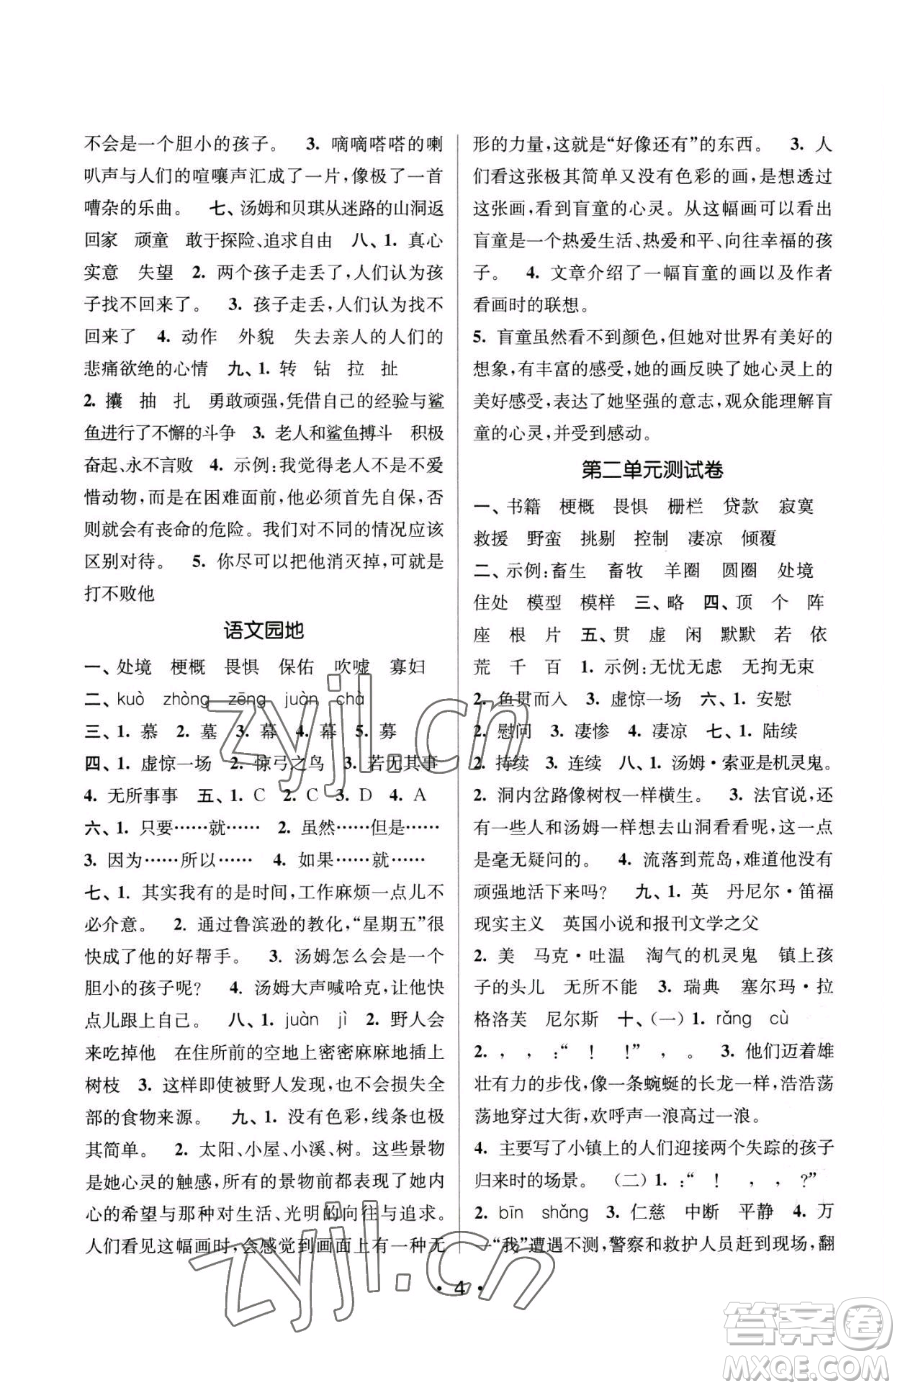 不会是一个胆小的孩子。 3. 嘀嘀嗒嗒的喇
叭声与人们的喧嚷声汇成了一片,像极了一首
嘈杂的乐曲。 七、汤姆和贝琪从迷路的山洞返
回家 顽童 敢于探险、追求自由 八、1. 真心
实意 失望 2. 两个孩子走丢了,人们认为孩
子找不回来了。 3. 孩子走丢,人们认为找不
回来了 4. 动作 外貌 失去亲人的人们的
悲痛欲绝的心情 九、1. 转 钻 拉 扯
2. 攮 抽 扎 勇敢顽强,凭借自己的经验与鲨
鱼进行了不懈的斗争 3. 老人和鲨鱼搏斗 积极
奋起、永不言败 4. 示例:我觉得老人不是不爱
惜动物,在困难面前,他必须首先自保,否
则就会有丧命的危险。我们对不同的情况应该
区别对待。 5. 你尽可以把他消灭掉,可就是
打不败他
语文园地
一、处境 梗概 畏惧 保佑 吹嘘 寡妇
二、kuò zhòng zēng juàn chà
三、1. 慕 2. 墓 3. 幕 4. 幕 5. 募
四、1. 虚惊一场 2. 惊弓之鸟 3. 若无其事
4. 无所事事 五、1. C 2. C 3. D 4. A
六、1. 只要……就…… 2. 虽然……但是……
3. 因为……所以…… 4. 如果……就……
七、1. 其实我有的是时间,工作麻烦一点儿不
必介意。 2. 通过鲁滨逊的教化,“星期五”很
快成了他的好帮手。 3. 汤姆怎么会是一个
胆小的孩子呢? 4. 汤姆大声喊哈克,让他快
点儿跟上自己。 八、1. juàn jì 2. 野人会
来吃掉他 在住所前的空地上密密麻麻地插上
树枝 3. 这样即使被野人发现,也不会损失全
部的食物来源。 九、1. 没有色彩,线条也极
其简单。 2. 太阳、小屋、小溪、树。这些景物
是她心灵的触感,所有的景物前都表现了她内
心的希望与那种对生活、光明的向往与追求。
人们看见这幅画时,会感觉到画面上有一种无
形的力量,这就是“好像还有”的东西。 3. 人
们看了这张极其简单又没有色彩的画,是想透过
这张画,看到盲童的心灵。从这幅画可以看出
盲童是一个热爱生活、热爱和平、向往幸福的孩
子。 4. 文章介绍了一幅盲童的画以及作者
看画时的联想。
5. 盲童虽然看不到颜色,但她对世界有美好的
想象,有丰富的感受,她的画反映了她心灵上的
美好感受,表达了她坚强的意志,观众能理解盲
童的心灵,并受到感动。
第二单元测试卷
一、书籍 梗概 畏惧 栅栏 贷款 寂寞
救援 野蛮 挑剔 控制 凄凉 倾覆
二、示例:畜生 畜牧 羊圈 圆圈 处境
住处 模型 模样 三、略 四、顶 个 阵
座 根 片 五、贯 虚 闲 默默 若 依
荒 千 百 1. 示例:无忧无虑 无拘无束
2. 鱼贯而入 3. 虚惊一场 六、1. 安慰
2. 慰问 3. 凄惨 4. 凄凉 七、1. 陆续
2. 持续 3. 连续 八、1. 汤姆·索亚是机灵鬼。
2. 洞内岔路像树杈一样横生。 3. 法官说,还
有一些人和汤姆一样想去山洞看看呢,这一点
是毫无疑问的。 4. 流落到荒岛,难道他没有
顽强地活下来吗? 九、1. 英 丹尼尔·笛福
现实主义 英国小说和报刊文学之父
2. 美 马克·吐温 淘气的机灵鬼 镇上孩
子的头儿 尼尔斯 3. 瑞典 塞尔玛·拉
格洛芙 尼尔斯 十、(一)1. rǎng cù
2. , , :“ ! !”, 。 3. 他们迈着雄
壮有力的步伐,像一条蜿蜒的长龙一样,浩浩荡
荡地穿过大街,欢呼声一浪高过一浪。
4. 主要写了小镇上的人们迎接两个失踪的孩子
归来时的场景。 (二)1. :“ ! , , ?”
2. bīn shǎng 3. 仁慈 中断 平静 4. 万
一“我”遭遇不测,警察和救护人员赶到现场,翻
· 4 ·
zyjl.cn
zyjl.cn
答案圈
MXQE.COM